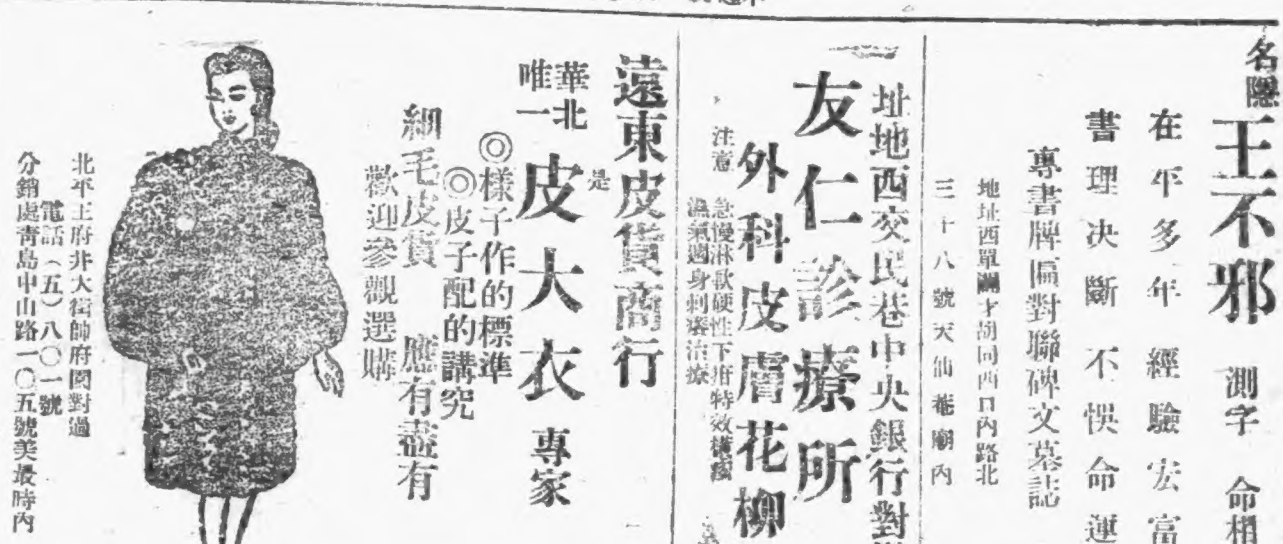 名隱
王不邪 測字 命相
在平多年 經驗宏富
書理决斷 不悞命運
專書牌匾對聯碑文墓誌
地址西單闢才胡同西口內路北
三十八號天仙菴廟內
址地西交民巷中央銀行對
友仁診療所
外科皮膚花柳
注意
急慢淋軟硬性下疳特效橫痃
濕氣遍身刺癢治療
遠東皮貨商行
是
華北
唯一
皮大衣 專家
◎樣子作的標準
◎皮子配的講究
細毛皮貨 應有盡有
歡迎參觀選購
北平王府井大街帥府園對過
電話(五)八〇一號
分銷處青島中山路一〇五號美最時內